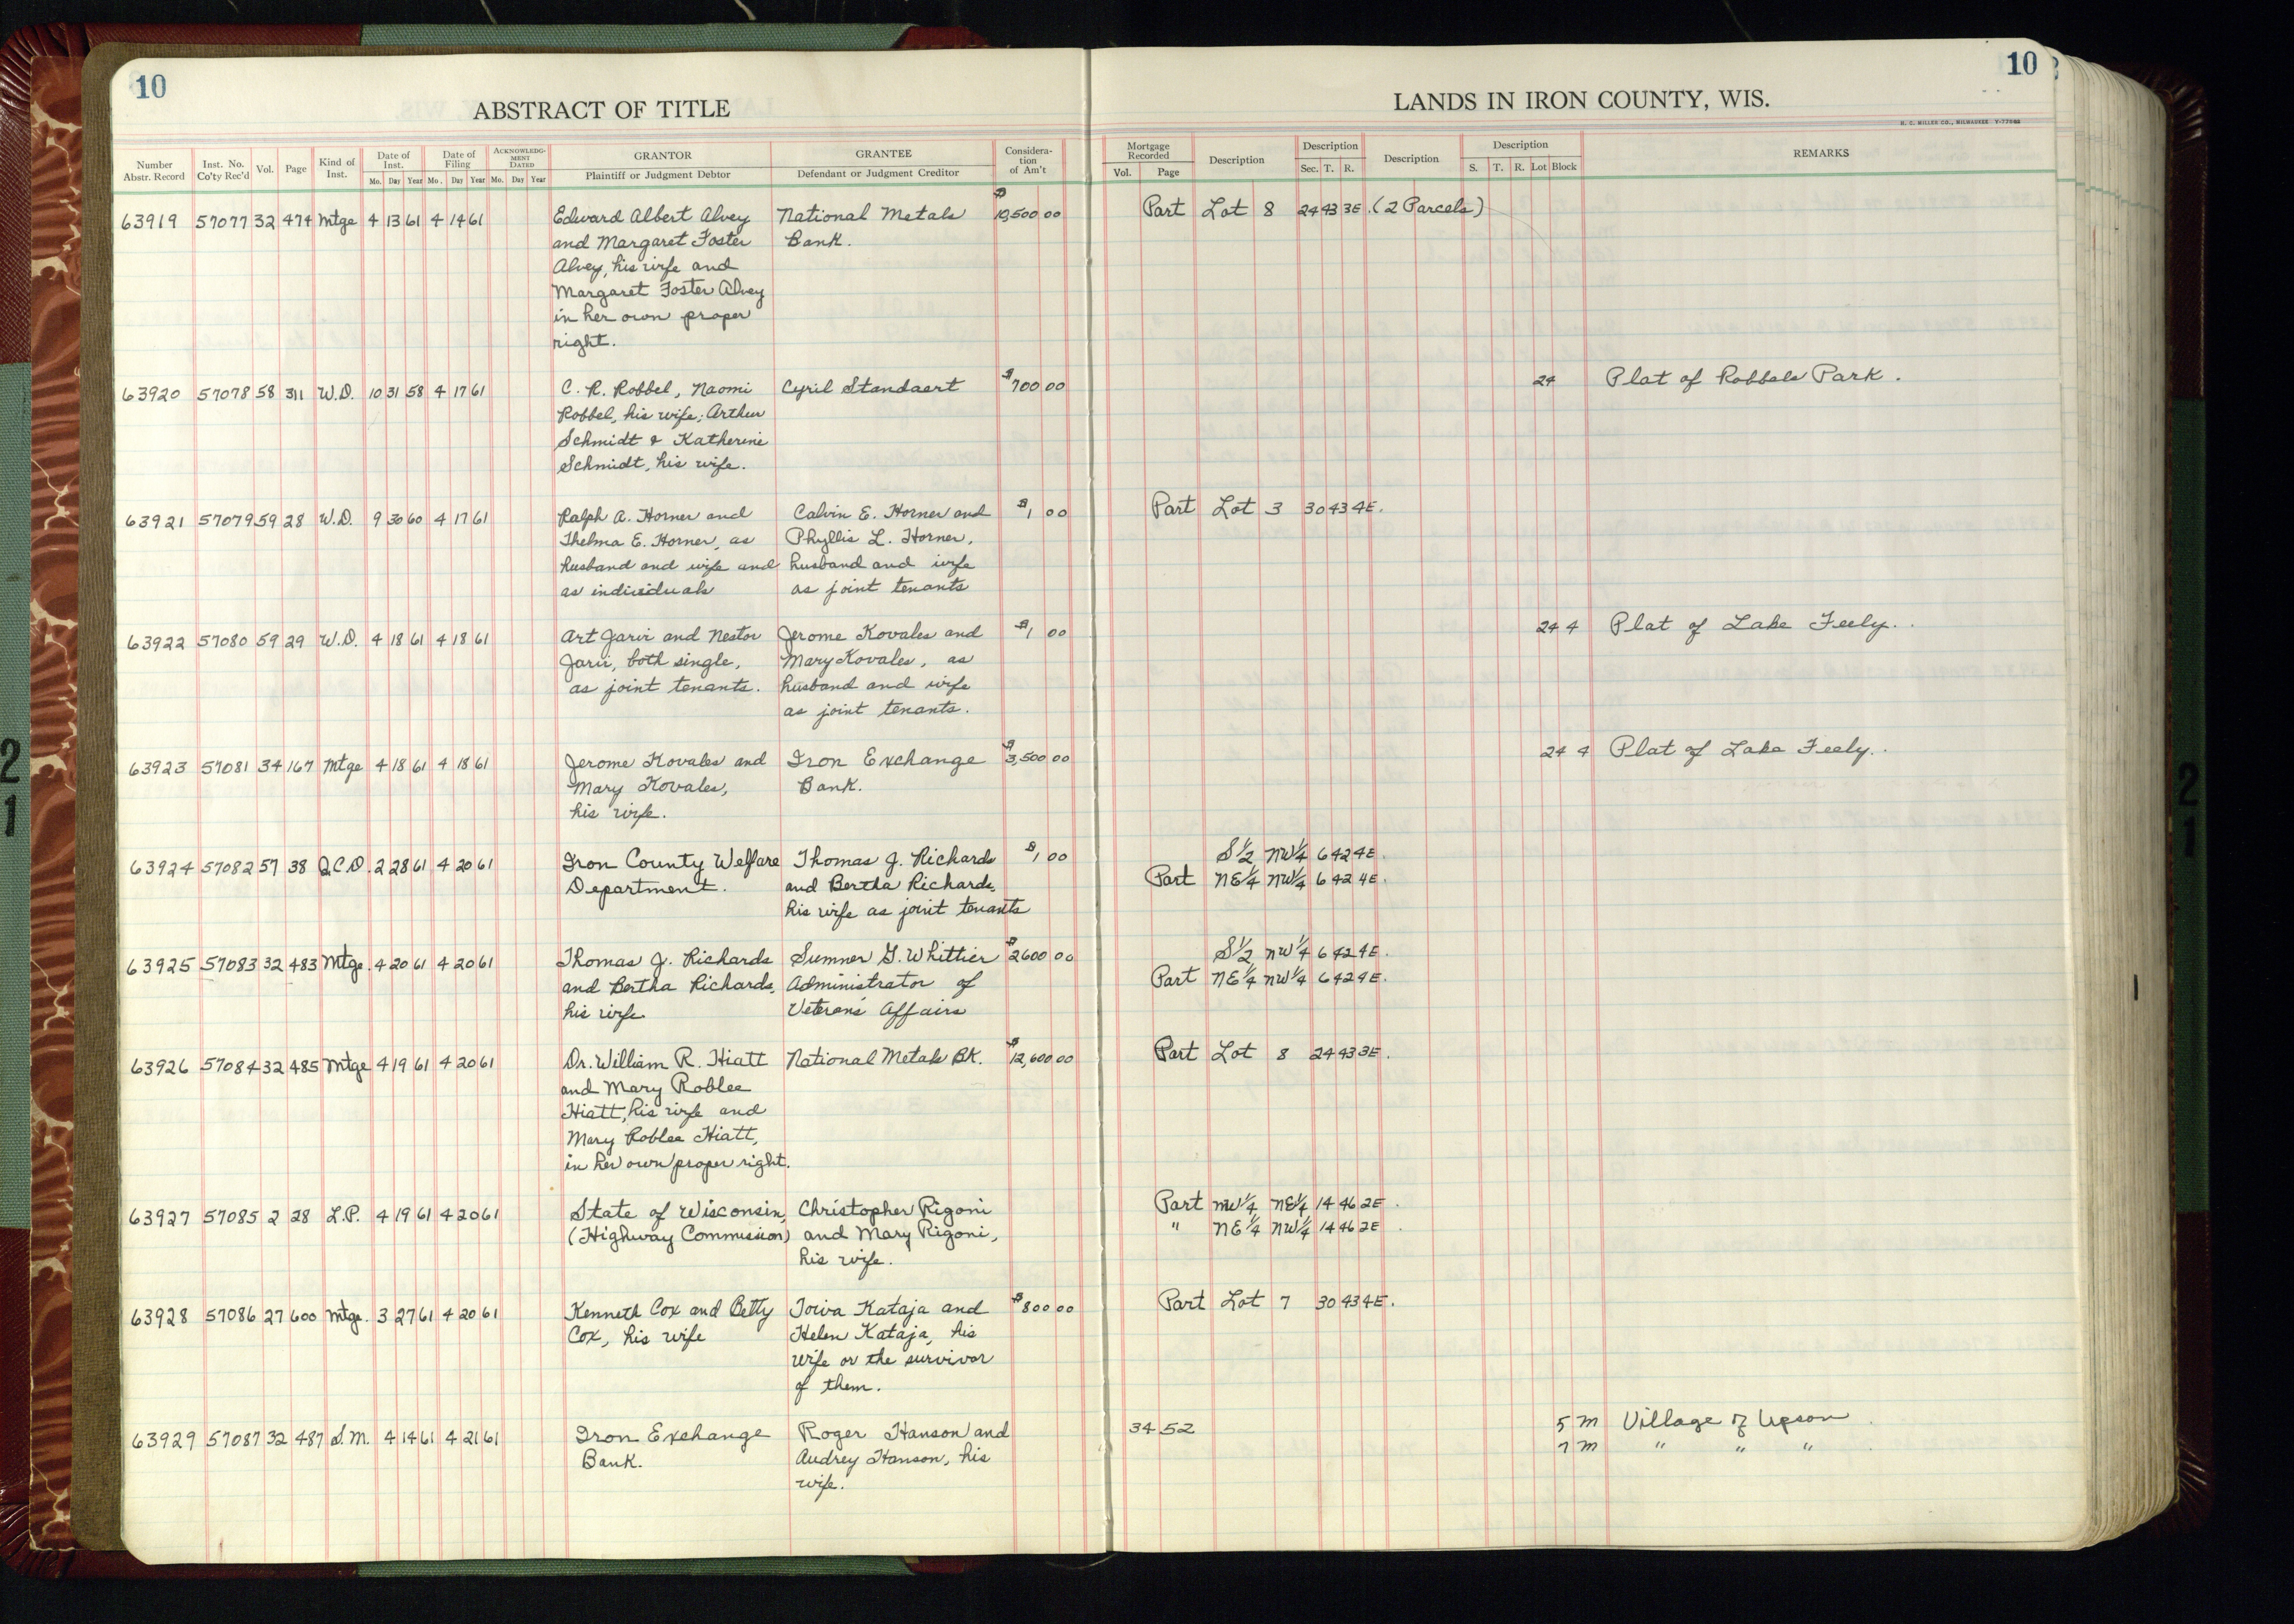 10
10
ABSTRACT OF TITLE
LANDS IN IRON COUNTY, WIS.
H. C. MILLER CO., MILWAUKEE
Number Abstr. Record Inst. No. Co'ty Rec'd Vol. Page Kind of Inst. Date of Inst. Mo. Day Year Date of Filing Mo. Day Year ACKNOWLEDGMENT DATED Mo. Day Year GRANTOR Plaintiff or Judgment Debtor GRANTEE Defendant or Judgment Creditor Consideration of Am't Mortgage Recorded Vol. Page Description Description Sec. T. R. Description Description S. T. R. Lot Block REMARKS
63919 57077 32 474 Mtge 4 13 61 4 14 61 Edward Albert Alvey National Metals $10,500 00 Part Lot 8 24 43 3E. (2 Parcels)
and Margaret Foster Bank.
Alvey, his wife and
Margaret Foster Alvey
in her own proper
right.
63920 57078 58 311 W.D. 10 31 58 4 17 61 C. R. Robbel, Naomi Cyril Standaert $700 00 24 Plat of Robbels Park.
Robbel, his wife; Arthur
Schmidt & Katherine
Schmidt, his wife.
63921 57079 59 28 W.D. 9 30 60 4 17 61 Ralph A. Horner and Calvin E. Horner and $1 00 Part Lot 3 30 43 4E.
Thelma E. Horner, as Phyllis L. Horner,
husband and wife and husband and wife
as individuals as joint tenants
63922 57080 59 29 W.D. 4 18 61 4 18 61 Art Jarvi and Nestor Jerome Kovales and $1 00 24 4 Plat of Lake Feely.
Jarvi, both single, Mary Kovales, as
as joint tenants. husband and wife
as joint tenants.
63923 57081 34 167 Mtge 4 18 61 4 18 61 Jerome Kovales and Iron Exchange $3,500 00 24 4 Plat of Lake Feely.
Mary Kovales, Bank.
his wife.
63924 57082 57 38 Q.C.D. 2 28 61 4 20 61 Iron County Welfare Thomas J. Richards $1 00 S1/2 NW1/4 6 42 4E.
Department. and Bertha Richards, Part NE1/4 NW1/4 6 42 4E.
his wife as joint tenants
63925 57083 32 483 Mtge. 4 20 61 4 20 61 Thomas J. Richards Sumner G. Whittier $2600 00 S1/2 NW1/4 6 42 4E.
and Bertha Richards, Administrator of Part NE1/4 NW1/4 6 42 4E.
his wife Veterans' Affairs
63926 57084 32 485 Mtge 4 19 61 4 20 61 Dr. William R. Hiatt National Metals BK. $12,600 00 Part Lot 8 24 43 3E.
and Mary Roblee
Hiatt, his wife and
Mary Roblee Hiatt,
in her own proper right.
63927 57085 2 28 L.P. 4 19 61 4 20 61 State of Wisconsin, Christopher Rigoni Part NW1/4 NE1/4 14 46 2E.
(Highway Commission) and Mary Rigoni, " NE1/4 NW1/4 14 46 2E.
his wife.
63928 57086 27 600 Mtge. 3 27 61 4 20 61 Kenneth Cox and Betty Toiva Kataja and $800 00 Part Lot 7 30 43 4E.
Cox, his wife Helen Kataja, his
wife or the survivor
of them.
63929 57087 32 487 S.M. 4 14 61 4 21 61 Iron Exchange Roger Hanson and 34 52 5 M Village of Upson
Bank. Audrey Hanson, his 7 M " " "
wife.
21
21